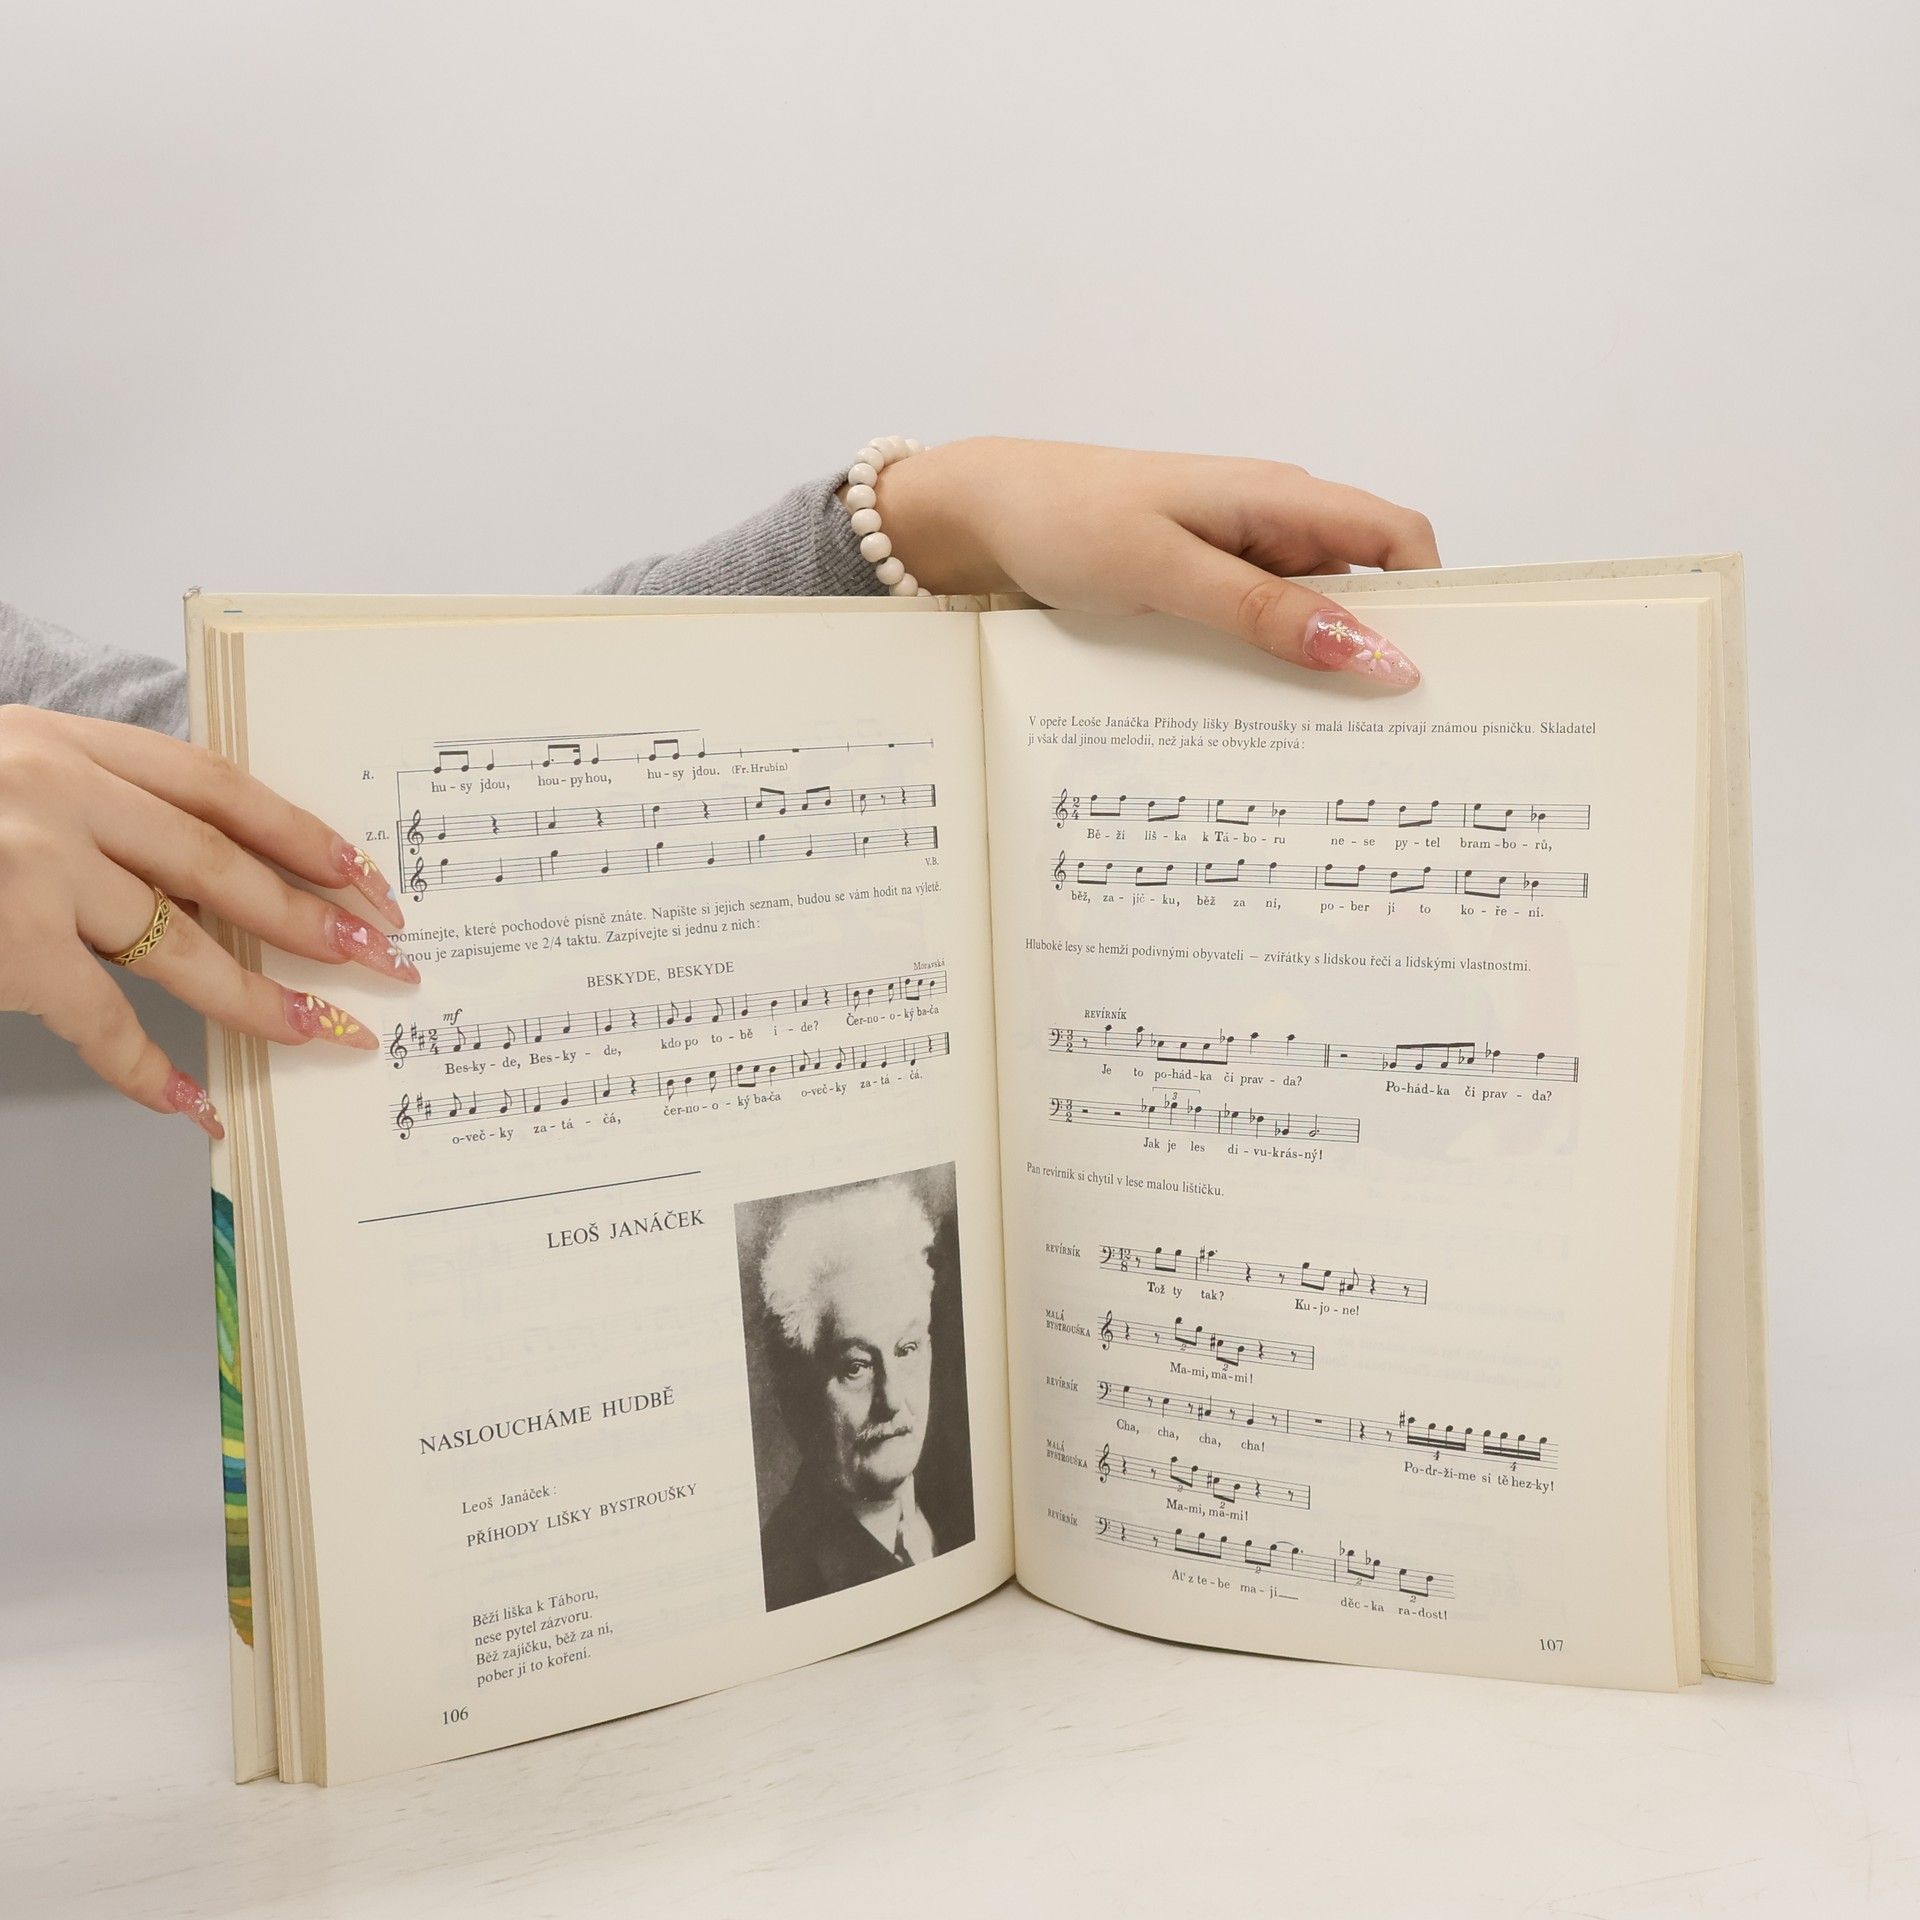 R.
hu - sy jdou, hou - py hou, hu - sy jdou. (Fr. Hrubín)
Z.fl.
V.B.
které pochodové písně znáte. Napište si jejich seznam, budou se vám hodit na výletě.
je zapisujeme ve 2/4 taktu. Zazpívejte si jednu z nich:
BESKYDE, BESKYDE
Moravská
mf
Bes-ky - de, Bes-ky - de, kdo po to - bě i - de? Čer-no - o - ký ba-ča
o-več - ky za - tá - čá, čer-no - o - ký ba-ča o-več - ky za - tá - čá.
LEOŠ JANÁČEK
NASLOUCHÁME HUDBĚ
Leoš Janáček:
PŘÍHODY LIŠKY BYSTROUŠKY
Běží liška k Táboru,
nese pytel zázvoru.
Běž zajíčku, běž za ní,
pober jí to koření.
106
V opeře Leoše Janáčka Příhody lišky Bystroušky si malá liščata zpívají známou písničku. Skladatel
jí však dal jinou melodii, než jaká se obvykle zpívá:
Bě - ží liš - ka k Tá - bo - ru ne - se py - tel bram - bo - rů,
běž, za - jíč - ku, běž za ní, po - ber jí to ko - ře - ní.
Hluboké lesy se hemží podivnými obyvateli – zvířátky s lidskou řečí a lidskými vlastnostmi.
REVÍRNÍK
Je to po-hád-ka či prav - da? Po-hád-ka či prav - da?
3
Jak je les di - vu-krás-ný!
Pan revírník si chytil v lese malou lištičku.
REVÍRNÍK
Tož ty tak? Ku - jo - ne!
MALÁ
BYSTROUŠKA
2 2
Ma-mi, ma-mi!
REVÍRNÍK
Cha, cha, cha, cha! Po-dr-ží-me si tě hez-ky!
4 4
MALÁ
BYSTROUŠKA
2 2
Ma-mi, ma-mi!
REVÍRNÍK
2 2 2
Ať z te - be ma - jí děc - ka ra-dost!
107